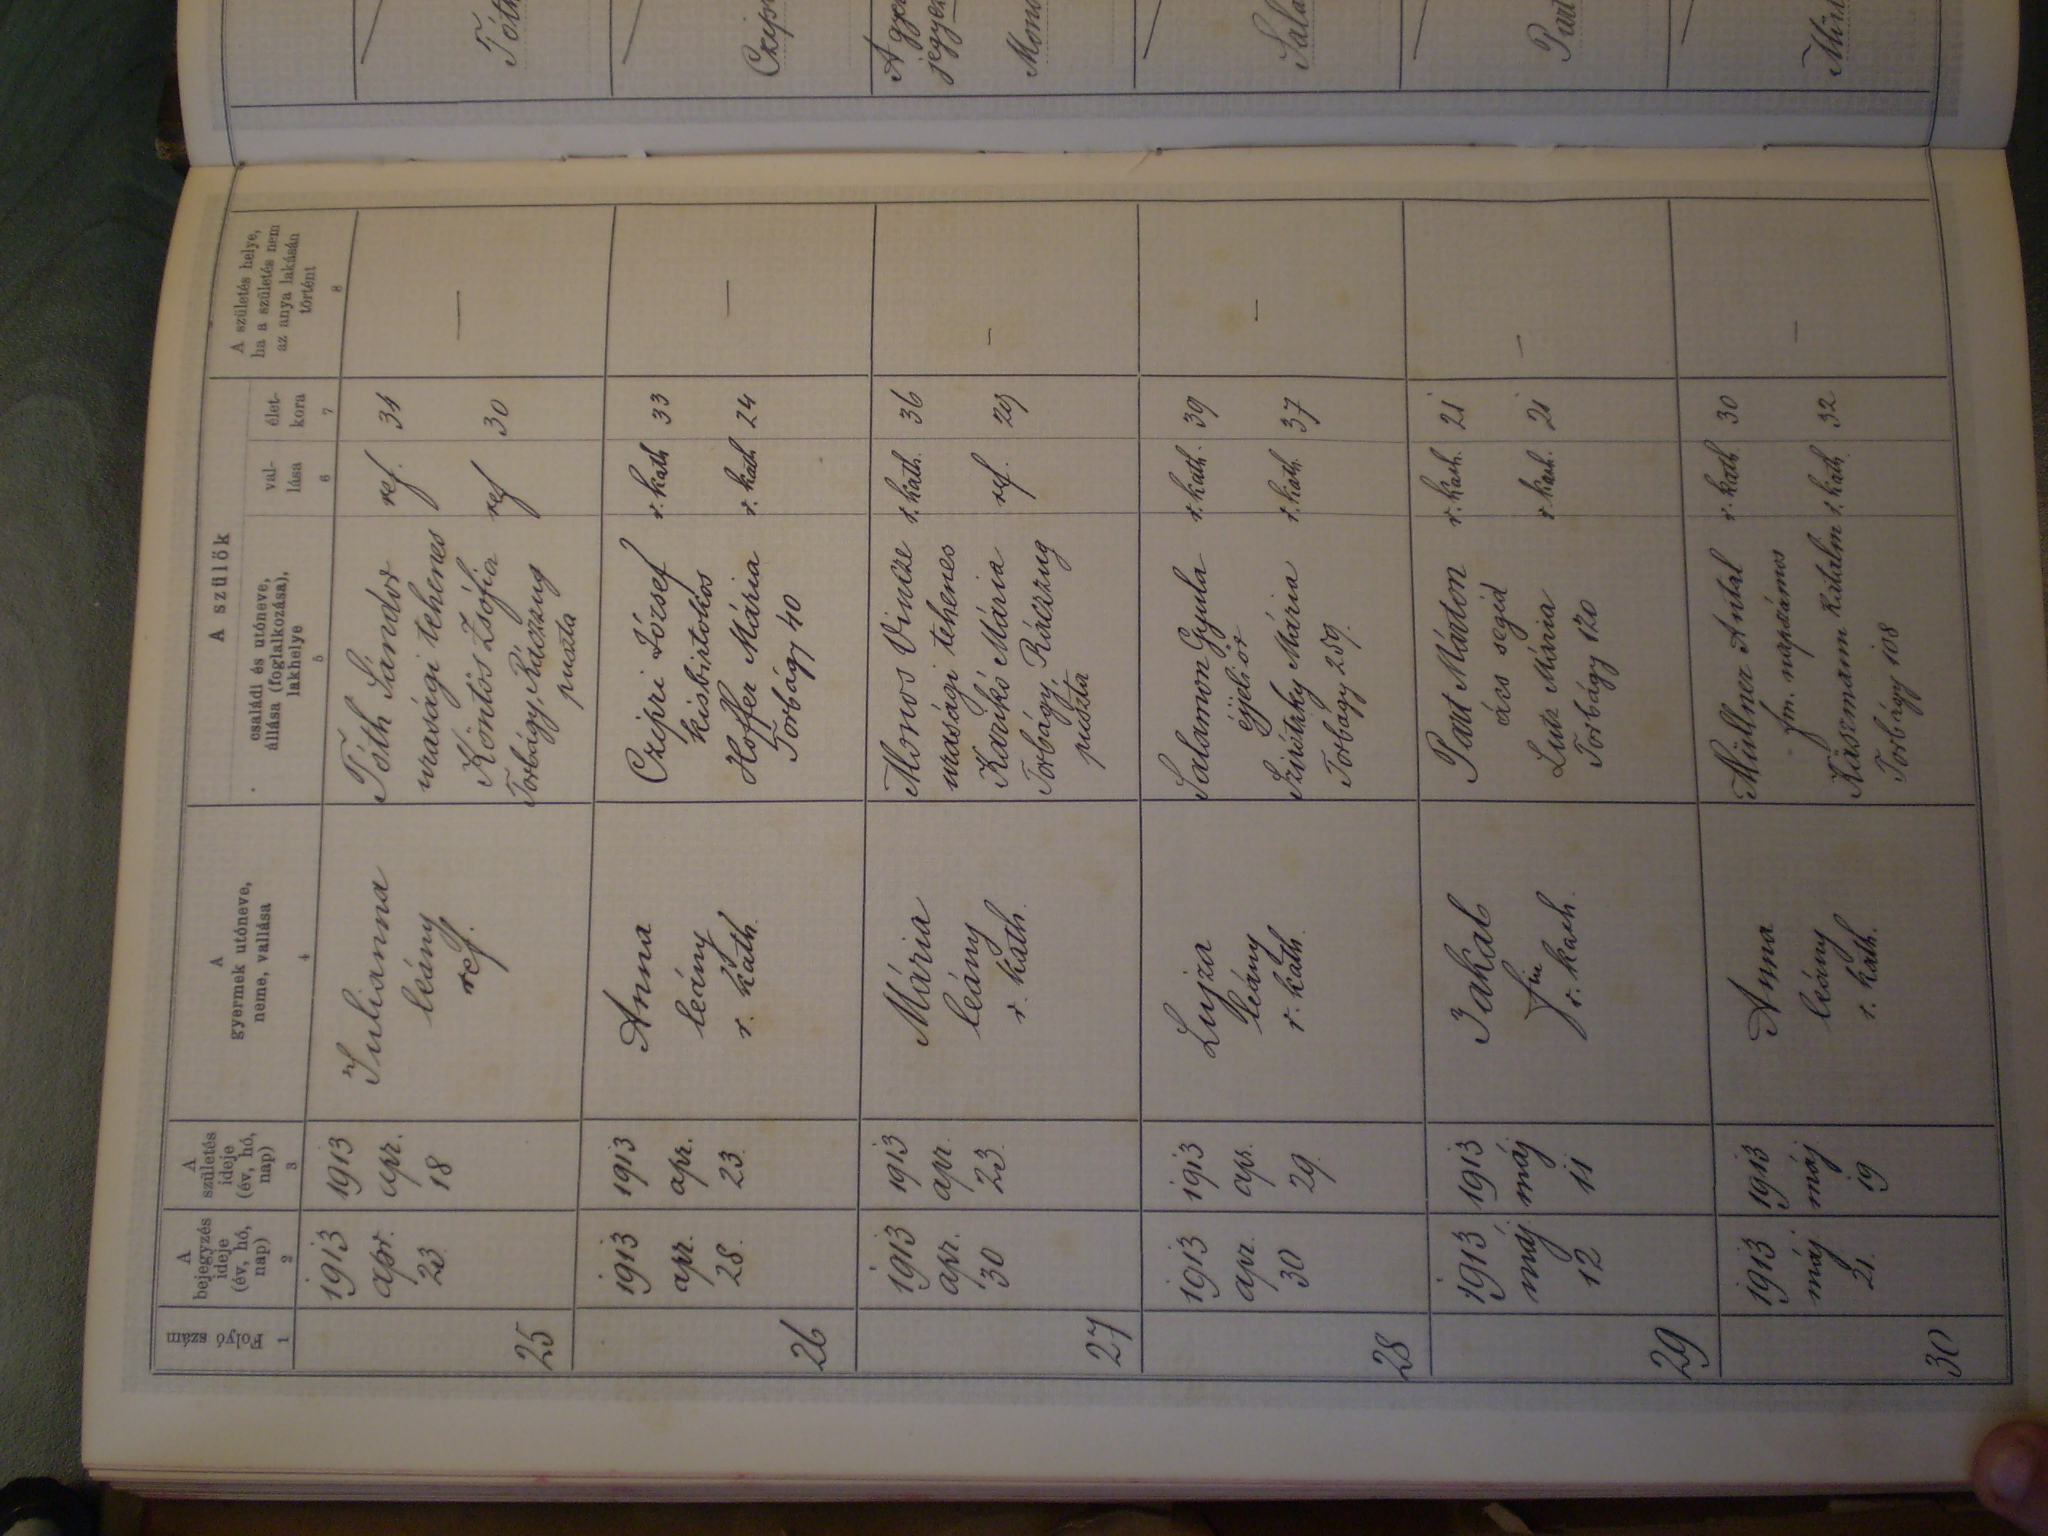 Folyó szám
A bejegyzés ideje (év, hó, nap)
A születés ideje (év, hó, nap)
A gyermek utóneve, neme, vallása
A szülők
családi és utóneve, állása (foglalkozása), lakhelye
val-lása
élet-kora
A születés helye, ha a születés nem az anya lakásán történt
1 2 3 4 5 6 7 8
25
1913 apr. 23.
1913 apr. 18
Julianna
leány
ref.
Tóth Sándor ref. 31
urasági tehenes
Köntös Zsófia ref 30
Torbágy,
puszta
—
26
1913 apr. 28.
1913 apr. 23.
Anna
leány
r. kath.
Czipri József r. kath 33
kisbirtokos
Hoffer Mária r. kath 24
Torbágy 40
—
27
1913 apr. 30
1913 apr. 23.
Mária
leány
r. kath.
Monos Vincze r. kath. 36
urasági tehenes
Karikó Mária ref. 29
Torbágy,
puszta
—
28
1913 apr. 30
1913 apr. 29.
Lujza
leány
r. kath.
Salamon Gyula r. kath. 39
éjjeli őr
Mária r. kath. 37
Torbágy 259.
—
29
1913 máj 12
1913 máj 11
Jakab
fiu
r. kath.
Part Márton r. kath. 21
ács segéd
Lutz Mária r. kath. 21
Torbágy 120
—
30
1913 máj. 21.
1913 máj 19
Anna
leány
r. kath.
Müllner Antal r. kath. 30
fm. napszámos
Katalin r. kath. 32
Torbágy 108
—
Tóth
Czipr
A gyer
jegyer
Mono
Sala
Part
Mül